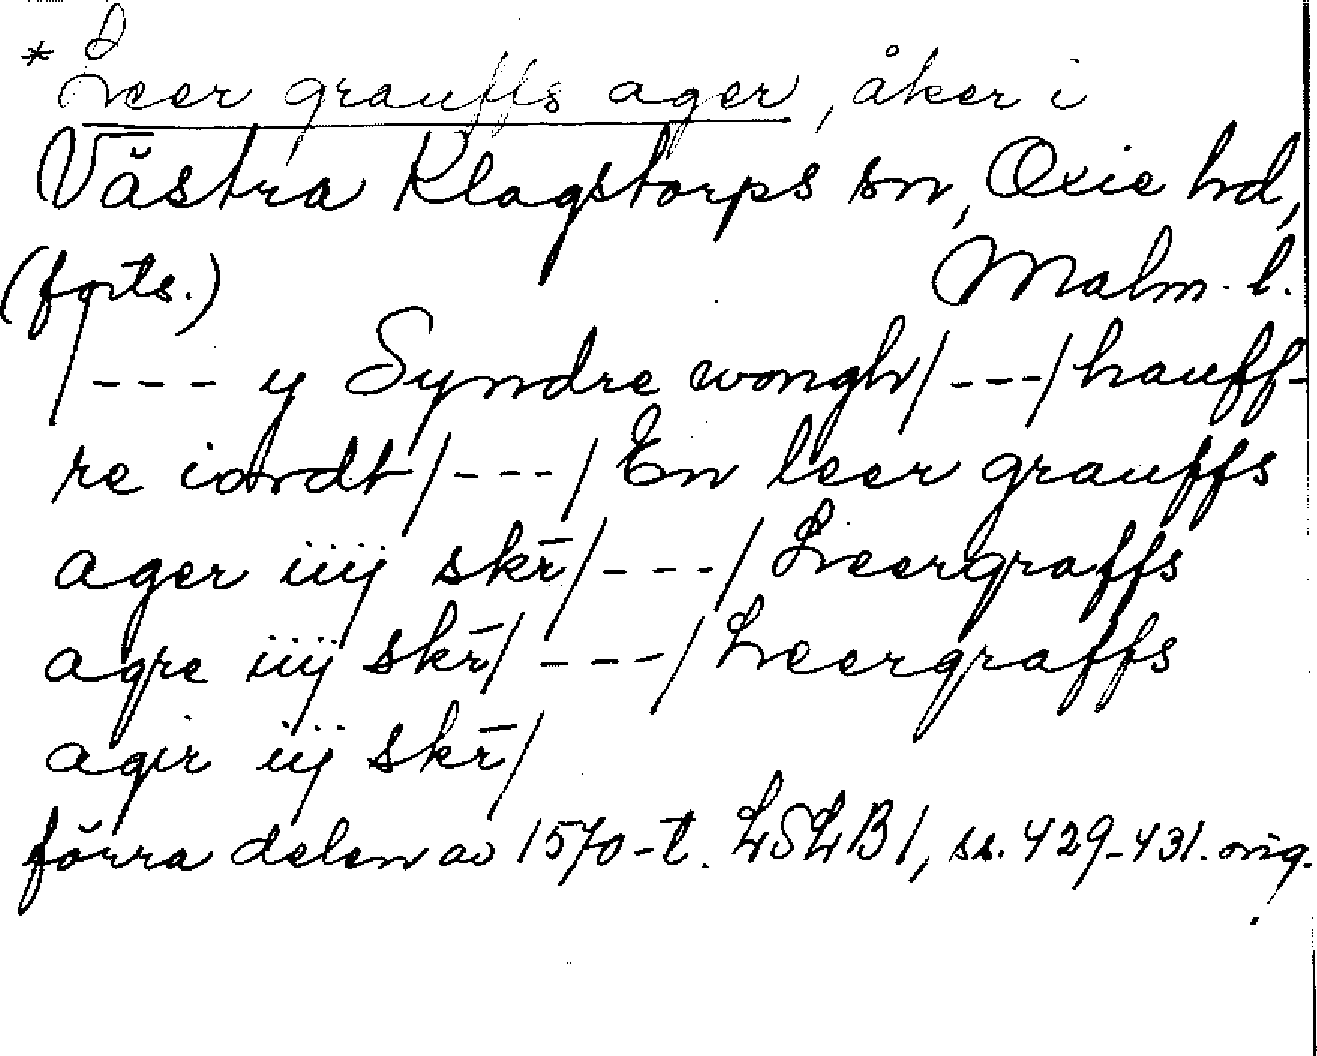 * Leer grauffs ager, åker i
Västra Klagstorps sn, Oxie hd,
(forts.) Malm. l.
/--- y Syndre wongh/---/hauff-
re iordt/---/En leer grauffs
ager iiij skr̄/---/Leergraffs
agre iiij skr̄/---/Leergraffs
agir iij skr̄/
förra delen av 1570-t. LSLB1, ss. 429-431. orig.